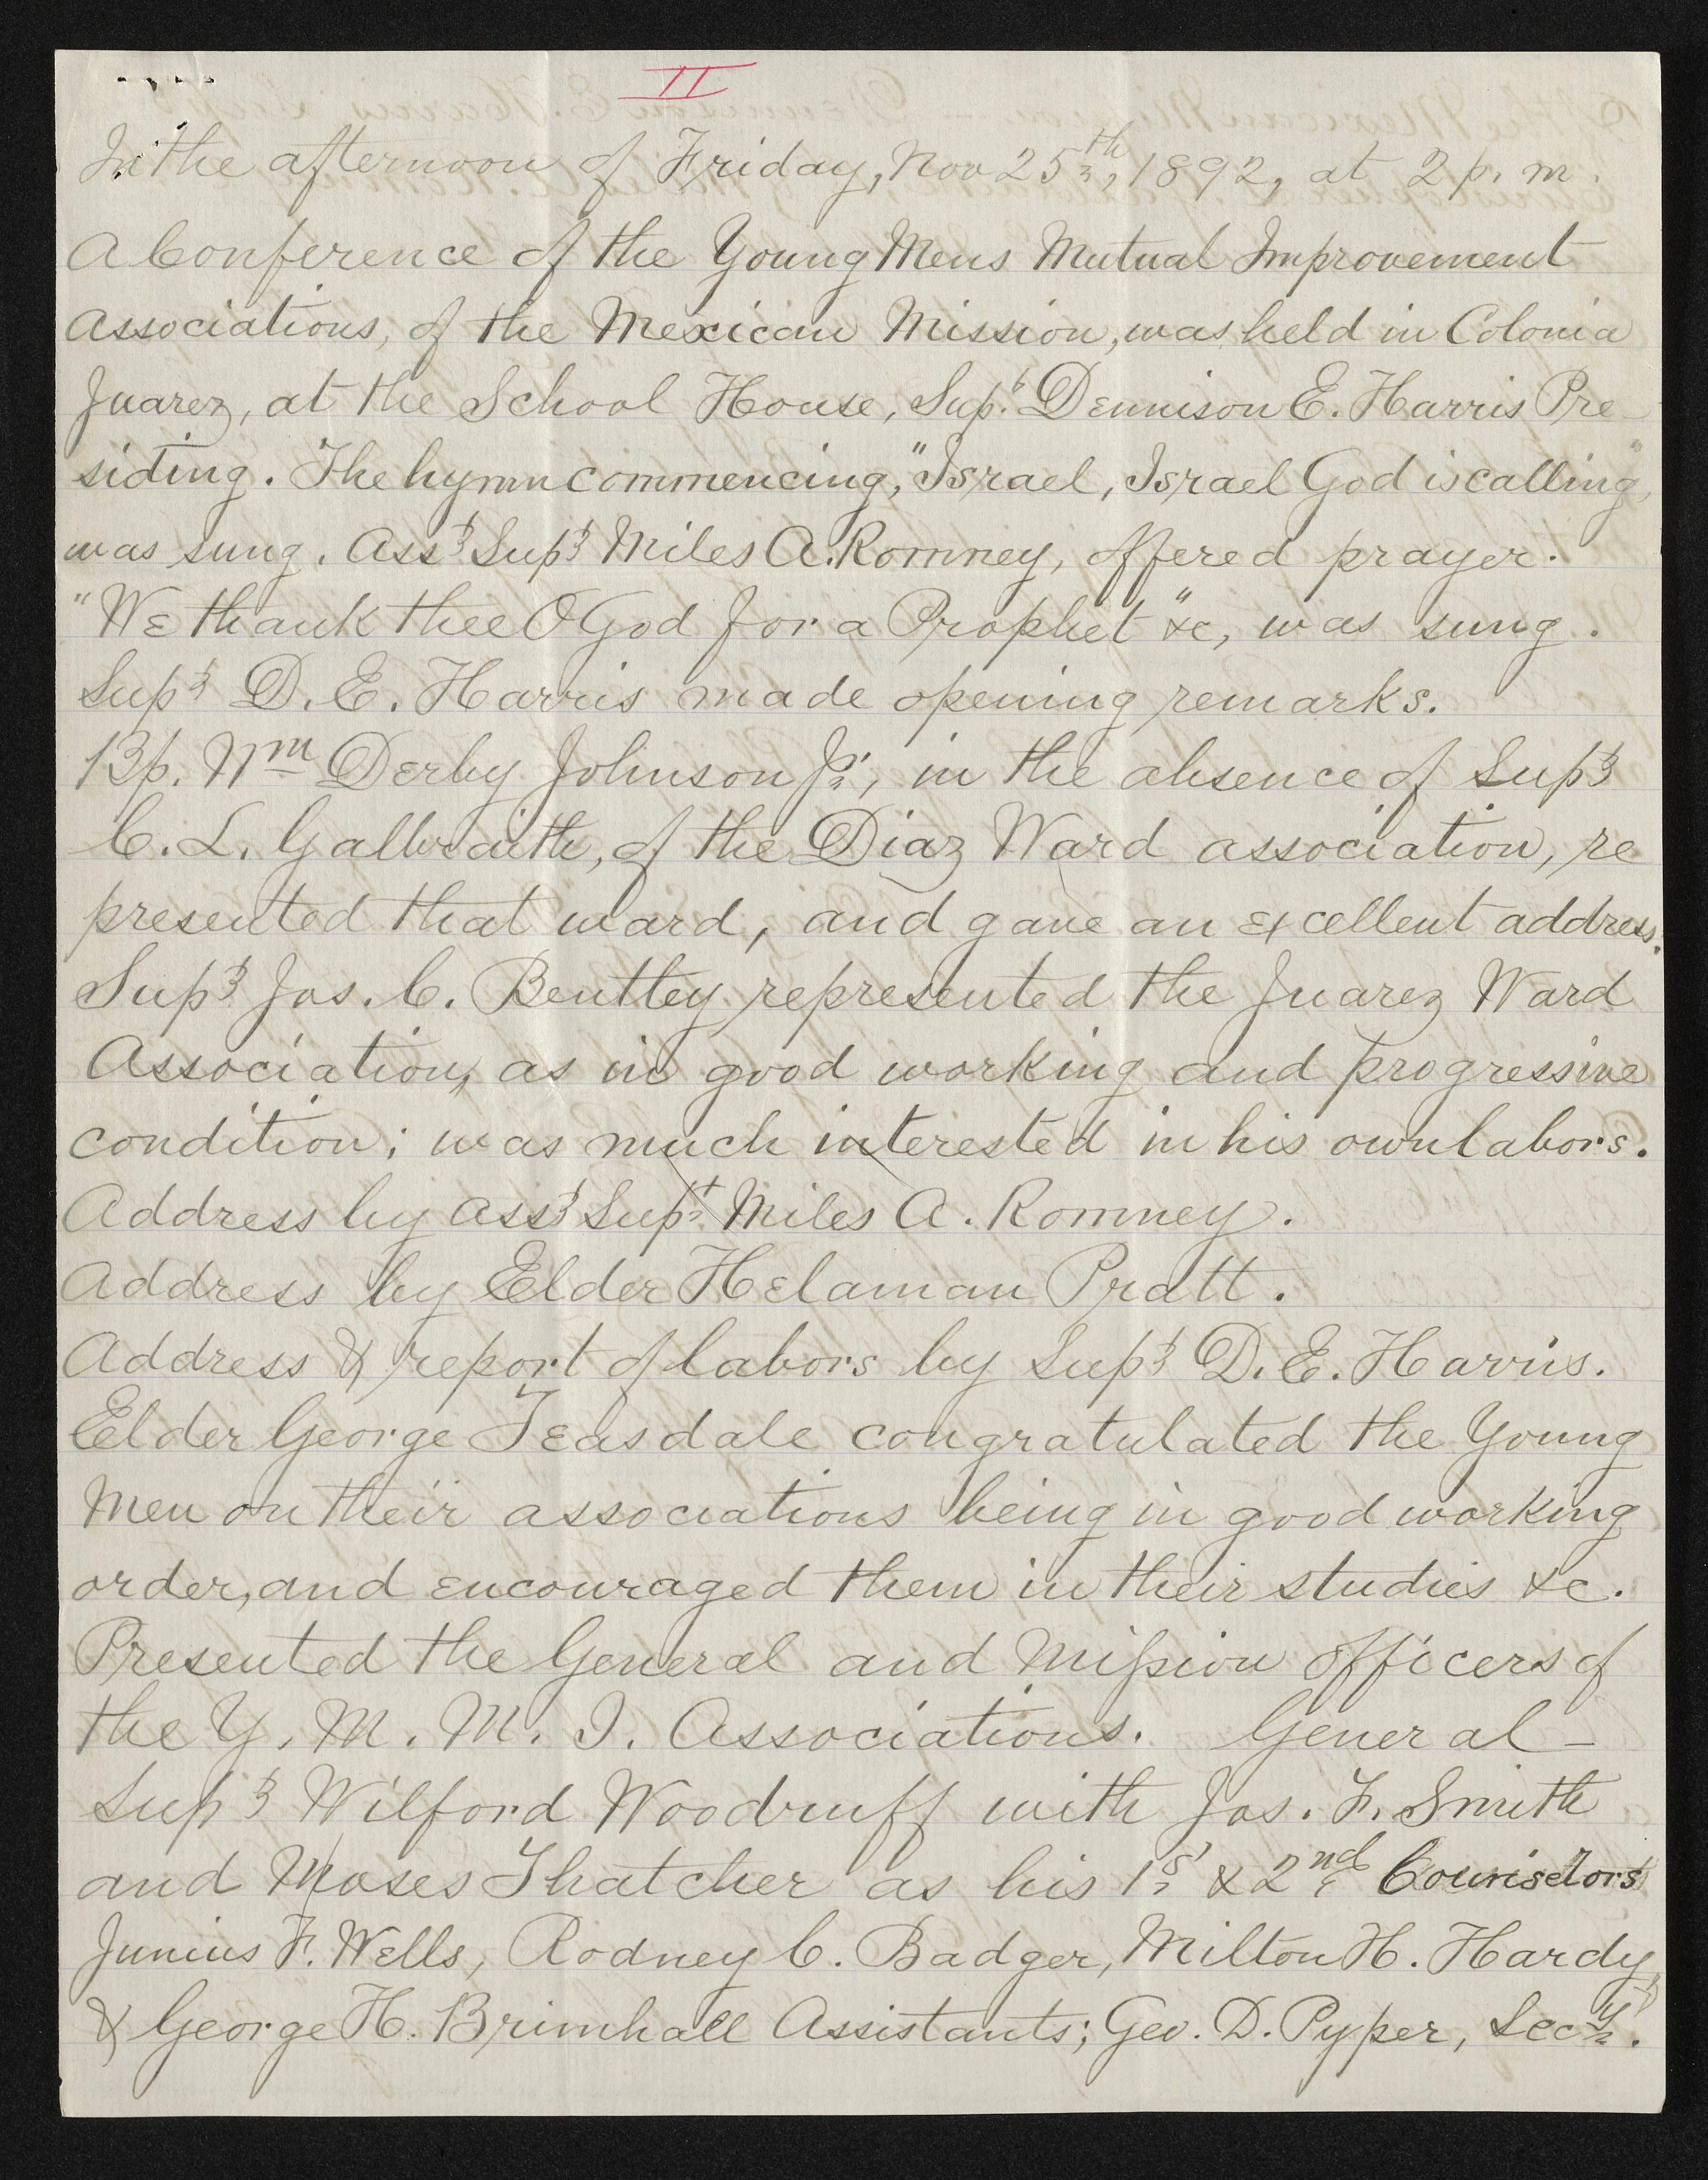 II
In the afternoon of Friday, Nov 25th, 1892, at 2 p. m.
A Conference of the Young Mens Mutual Improvement
Associations, of the Mexican Mission, was held in Colonia
Juarez, at the School House, Supt. Dennison E. Harris Pre-
siding. The hymn commencing, "Israel, Israel God is calling",
was sung. Asst Supt Miles A. Romney, offered prayer.
"We thank thee O God for a Prophet" &c, was sung.
Supt D. E. Harris made opening remarks.
Bp. Wm Derby Johnson Jr., in the absence of Supt
C. L. Galbraith, of the Diaz Ward association, re
presented that ward, and gave an excellent address.
Supt Jos. C. Bentley represented the Juarez Ward
Association, as in good working and progressive
condition; was much interested in his own labors.
Address by Asst Supt Miles A. Romney.
Address by Elder Helaman Pratt.
Address & report of labors by Supt D. E. Harris.
Elder George Teasdale congratulated the Young
Men on their associations being in good working
order, and encouraged them in their studies &c.
Presented the General and Mission officers of
the Y. M. M. I. Associations. General -
Supt Wilford Woodruff with Jos. F. Smith
and Moses Thatcher as his 1st & 2nd Counselors
Junius F. Wells, Rodney C. Badger, Milton H. Hardy,
& George H. Brimhall Assistants; Geo. D. Pyper, Secy.